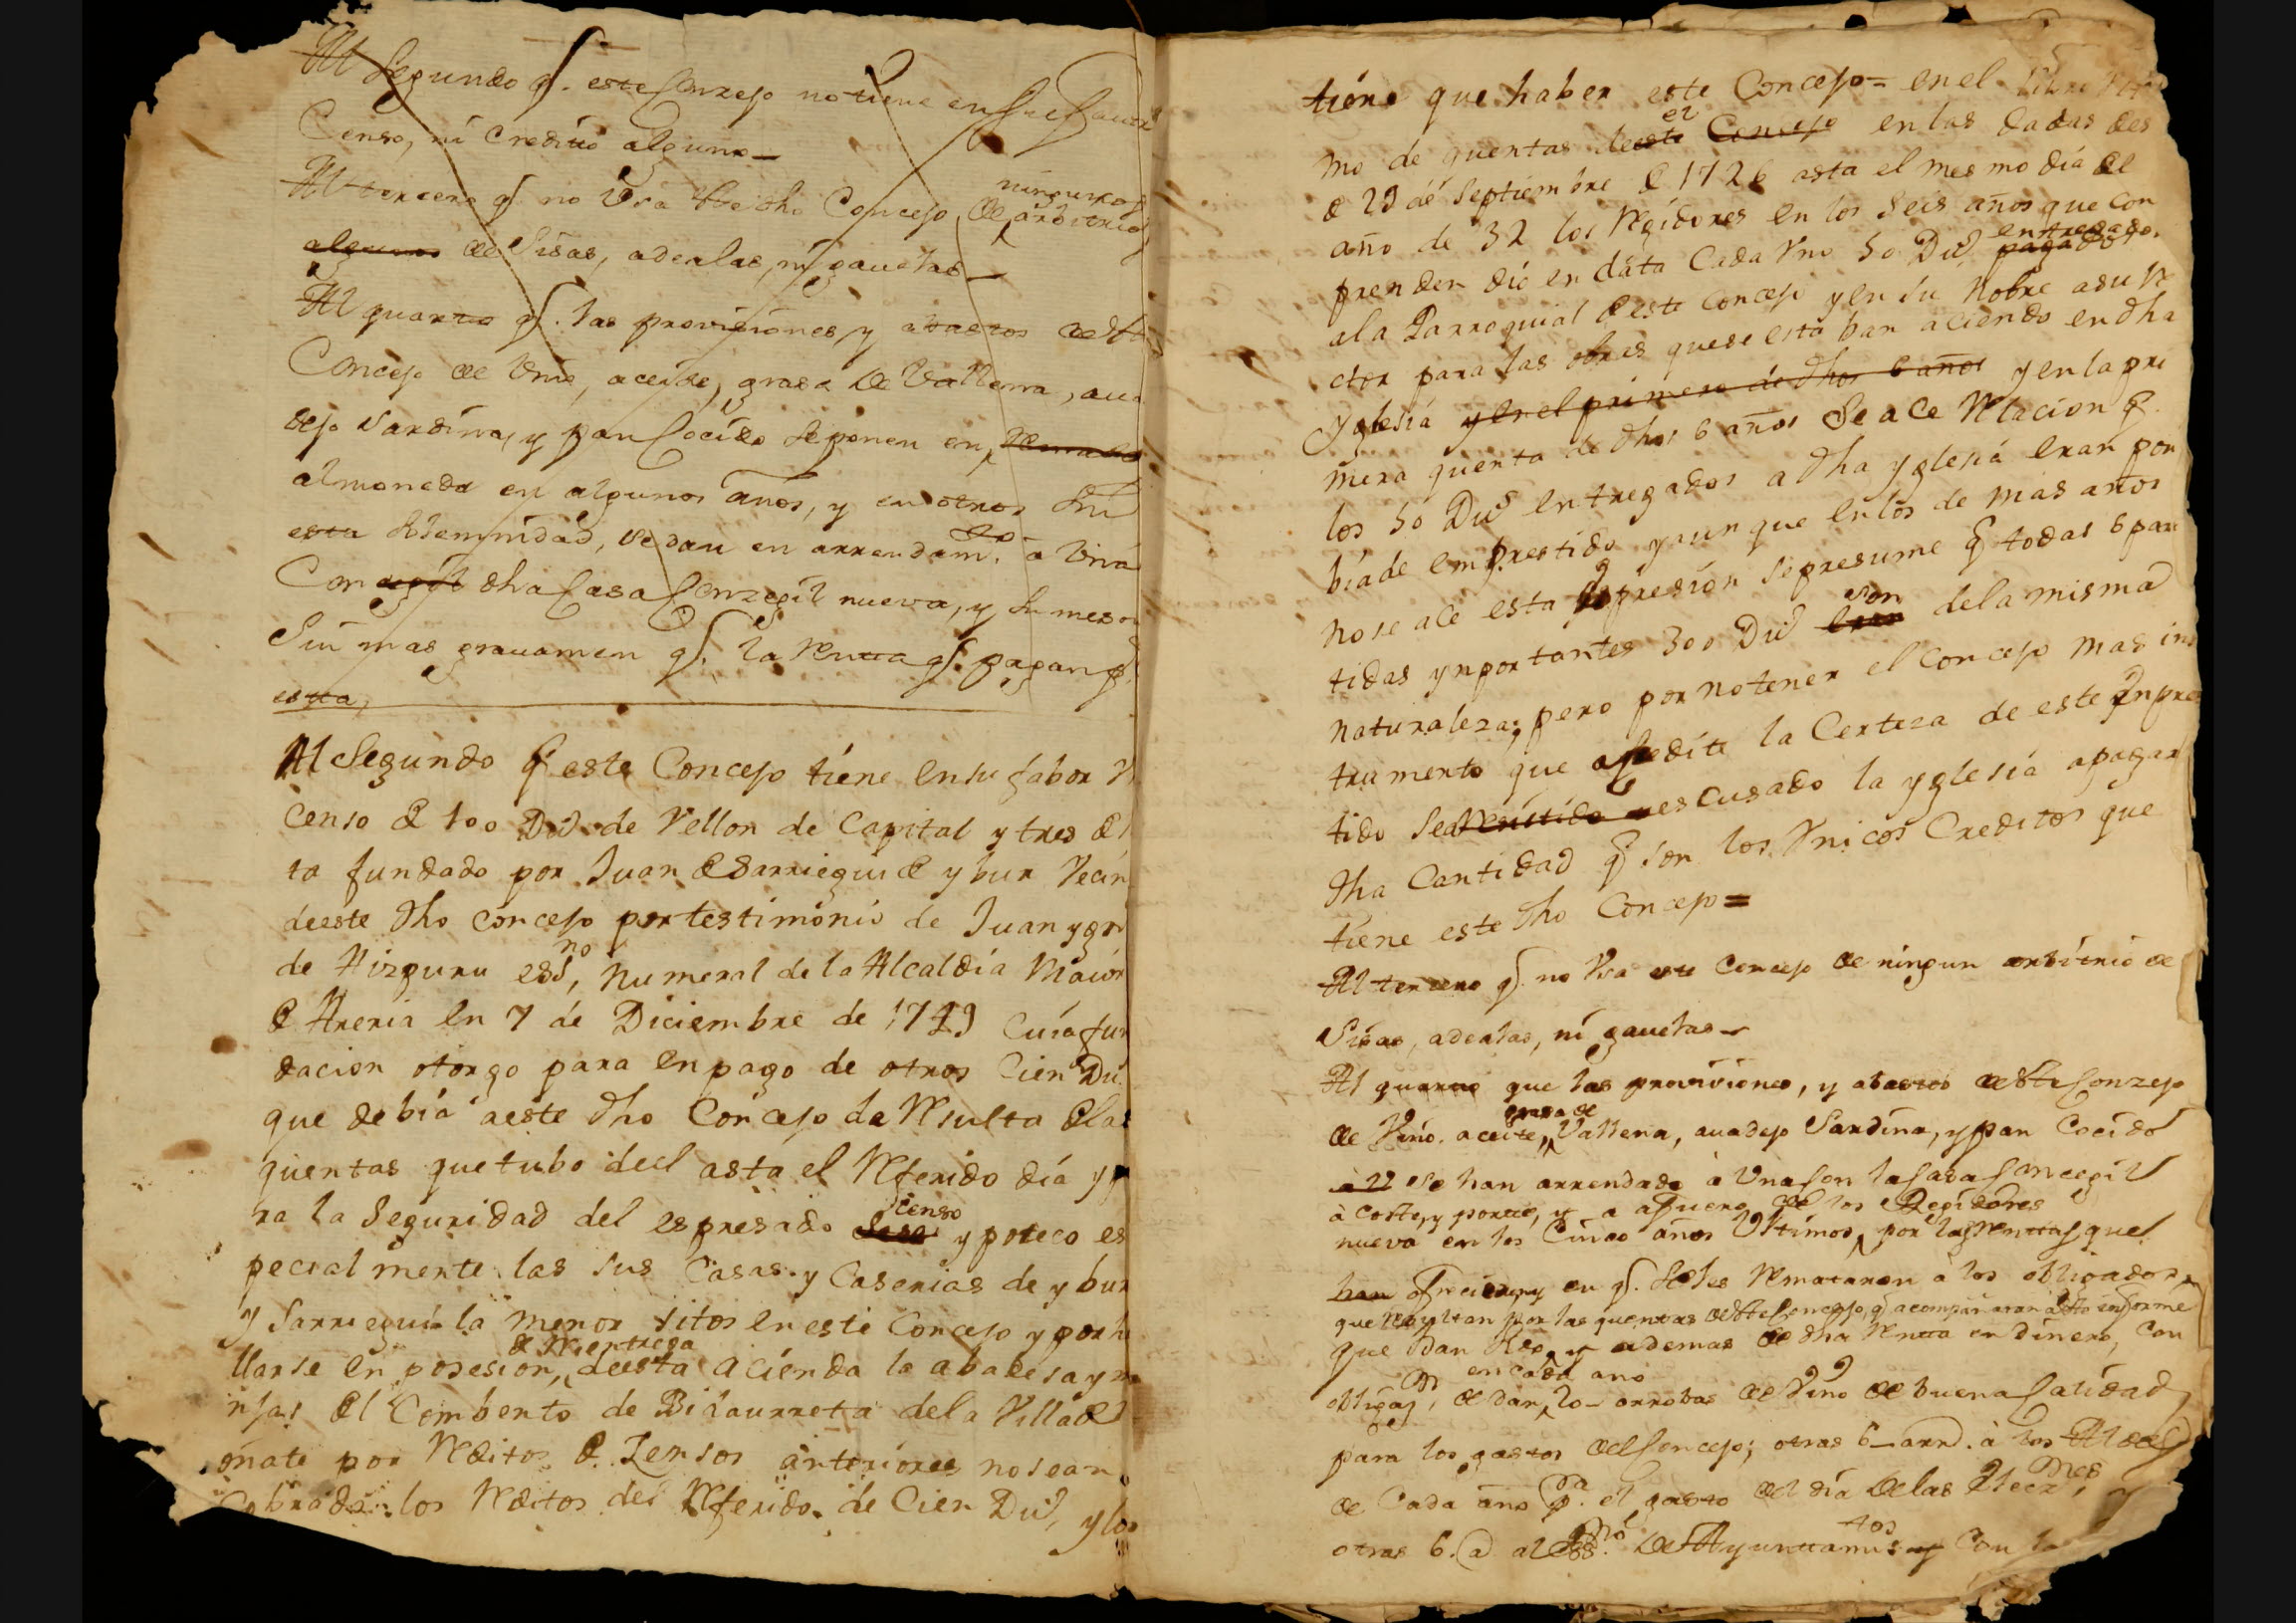 Al Segundo q. este Conzejo no tiene en su favor
Censo, ni Credito alguno
Al tercero q. no Usa este dho Concejo de ningunos arbitrios
algunos de Sisas, adealas, ni gauelas
Al quarto q. las provisiones y abastos de este
Concejo de Vino, aceite, grasa de Vallena, aua
dejo Sardina, y pan Cocido se ponen en Remate
almoneda en algunos años, y en otros sin
esta solemnidad, se dan en arrendam.to a Vna
Con dha Casa Conzegil nueva, y su meson
Sin mas grauamen q. la Renta q. pagan p.
esta,
Al Segundo q este Concejo tiene en su fabor V
Censo de 100 Dus de Vellon de Capital y tres de
to fundado por Juan de Sarriegui de ybur Vecin
deeste dho concejo por testimonio de Juan ygn
de Aizguru ess.no, numeral de la Alcaldia Maior
de Areria en 7 de Diciembre de 1749 Cuia fun
dacion otorgo para en pago de otros Cien Du.
que debia aeste dho Concejo de Resulta de las
quentas que tubo deel asta el Referido dia y p
ra la Seguridad del espresado Censo ypoteco es
pecialmente las sus Casas y Caserias de ybur
y Sarriegui la menor sitos en este Concejo y por h
llarse en posesion, de Reentrega deesta acienda la abadesa y m
njas del Combento de Bidaurreta dela Villa de
oñate por Reditos de Zensos anteriores no sean
Cobrado los Reditos del Referido de Cien Dus, y los
tiene que haber este Concejo = en el Libro
mo de quentas deeste el Concejo en las dadas des
de 29 de Septiembre de 1726 asta el mesmo dia del
año de 32 los Regidores en los seis años que con
prenden dio en data Cada Vno 50 Dus pagados entregado.
ala Parroquial de este Concejo y en su Nobre a su R
ctor para las obras que se estaban aciendo en dha
Yglesia y en el primero de dhos 6 años y en la pri
mera quenta de dhos 6 años Se ace Relacion q.
los 50 Dus entregados a dha yglesia eran por
bia de emprestido y aunque en los de mas años
no se ace esta espresion se presume q todas 6 par
tidas ynportantes 300 Dus eran son dela misma
naturaleza; pero por no tener el Concejo mas ins
trumento que acredite la Certeza de este Inpres
tido se a Resistido escusado la yglesia apagar
dha Cantidad q son los Vnicos Creditos que
tiene este dho Concejo =
Al tercero q. no Vsa este Concejo de ningun arbitrio de
Sisas, adealas, ni gauelas
Al quarto que las provisiones, y abastos de este Conzejo
de Vino. aceite, grasa de Vallena, auadejo Sardina, y pan Cocido
se han arrendado a Vna con la Casa Concegil
à coste, y porte, y a afuero de los Regidores
nueva en los Cinco años Vltimos, por las Rentas que
han ofrecieron, y en q. se les Remataron a los obligados,
que Resultan por las quentas de este Concejo, q acompañaran a este informe
que dan y ademas de dha Renta en dinero, con
obligaz.n de dar, en cada año 20 arrobas de Vino de buena Calidad
para los gastos del Concejo; otras 6 arr. à los Alcaldes
de Cada año p.a el gasto del dia de las Elecz.nes,
otras 6. @ al ess.no de Ayuntam.tos y Con la